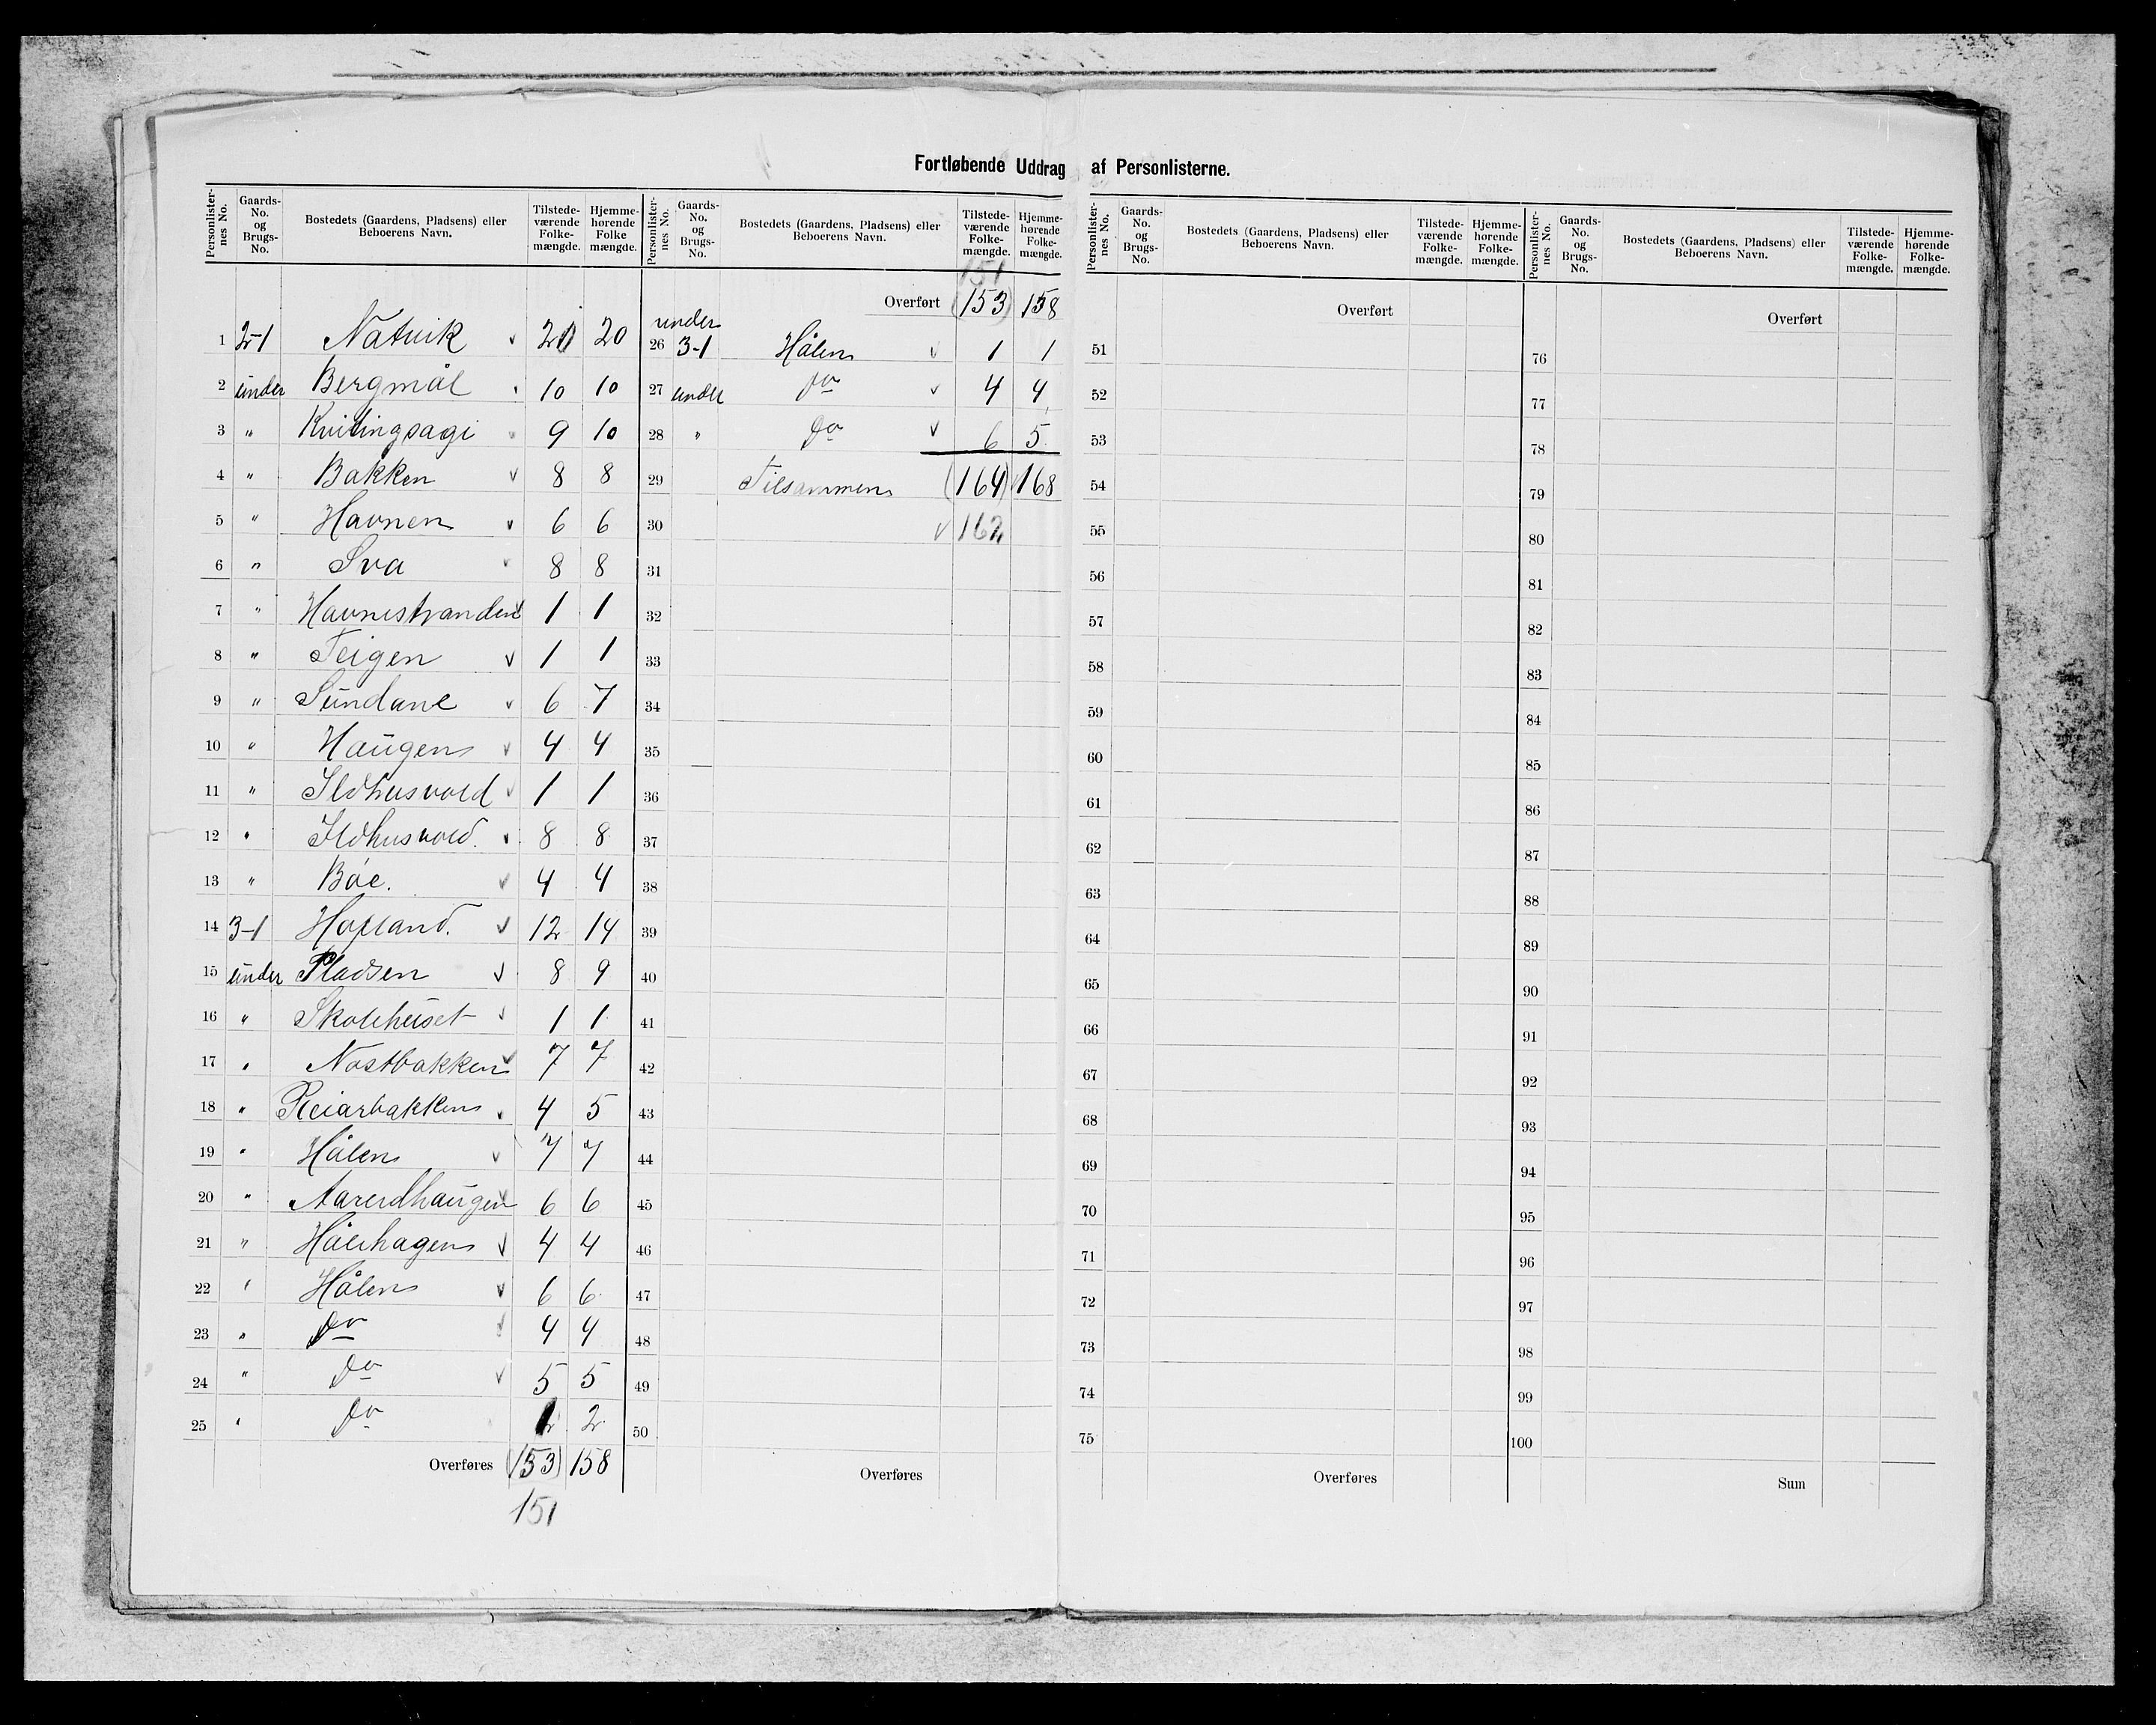 Fortløbende Uddrag af Personlisterne.
Personlister-nes No. Gaards-No. og Brugs-No. Bostedets (Gaardens, Pladsens) eller Beboerens Navn. Tilstede-værende Folke-mængde. Hjemme-hørende Folke mængde.
1 2-1 Natvik 20 20
2 under Bergmål 10 10
3 " Kvitingsagi 9 10
4 " Bakken 8 8
5 " Havnen 6 6
6 " Sva 8 8
7 " Havnestranden 1 1
8 " Teigen 1 1
9 " Sundane 6 7
10 " Haugen 4 4
11 " Ildhusvold 1 1
12 " Ildhusvold. 8 8
13 " Bøe. 4 4
14 3-1 Hopland. 12 14
15 under Pladsen 8 9
16 " Skolehuset 1 1
17 " Nostbakken 7 7
18 " Reiarbakken 4 5
19 " Hålen 7 7
20 " 6 6
21 " Hålehagen 4 4
22 " Hålen 6 6
23 " Do 4 4
24 " Do 5 5
25 " Do 2
Overføres (153) 158
151
Personlister-nes No. Gaards-No. og Brugs-No. Bostedets (Gaardens, Pladsens) eller Beboerens Navn. Tilstede-værende Folke-mængde. Hjemme-hørende Folke-mængde.
151
Overført (153) 158
under
26 3-1 Hålen 1 1
27 under Do 4 4
28 " Do 6 5
29 Tilsammen (164) 168
30 162
31
32
33
34
35
36
37
38
39
40
41
42
43
44
45
46
47
48
49
50
Overføres
Personlister-nes No. Gaards-No. og Brugs-No. Bostedets (Gaardens, Pladsens) eller Beboerens Navn. Tilstede-værende Folke-mængde. Hjemme-hørende Folke-mængde.
Overført
51
52
53
54
55
56
57
58
59
60
61
62
63
64
65
66
67
68
69
70
71
72
73
74
75
Overføres
Personlister-nes No. Gaards-No. og Brugs-No. Bostedets (Gaardens, Pladsens) eller Beboerens Navn. Tilstede-værende Folke-mængde. Hjemme-hørende Folke-mængde.
Overført
76
77
78
79
80
81
82
83
84
85
86
87
88
89
90
91
92
93
94
95
96
97
98
99
100
Sum